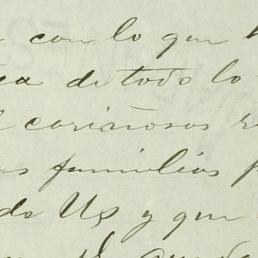 con lo que
de todo lo
cariñosos
familias
de Us y que